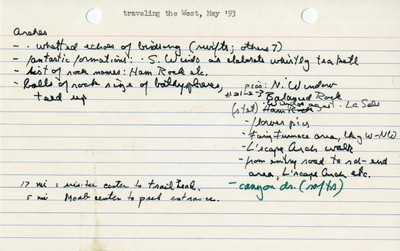 traveling the West, May '93
Arches
- whittled echoes of birdsong (swifts; others?)
- fantastic formations: S. Window as elaborate whistling teapot
- list of rock names: Ham Rock etc.
- Balls of rock rings of bathyspheres,
teed up
pics: N. Window
#21-2-3 Balanced Rock
(stet) Ham Rock La Sals
- flower pics
- Fiery Furnace area, lkg W-NW
- L'scape Arch walk
- from entry road to rd-end
area, L'scape Arch etc.
- canyon dr. (rafts)
17 mi : visitor center to trailhead.
5 mi Moab center to park entrance.